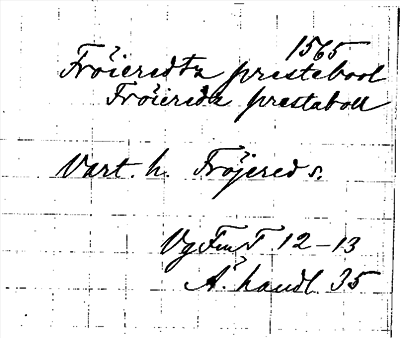 1565
Fröieredta prestebool
Fröiereda prestaboll
Vart. h. Fröjered s.
VgFmT 12-13
Ä. handl. 35